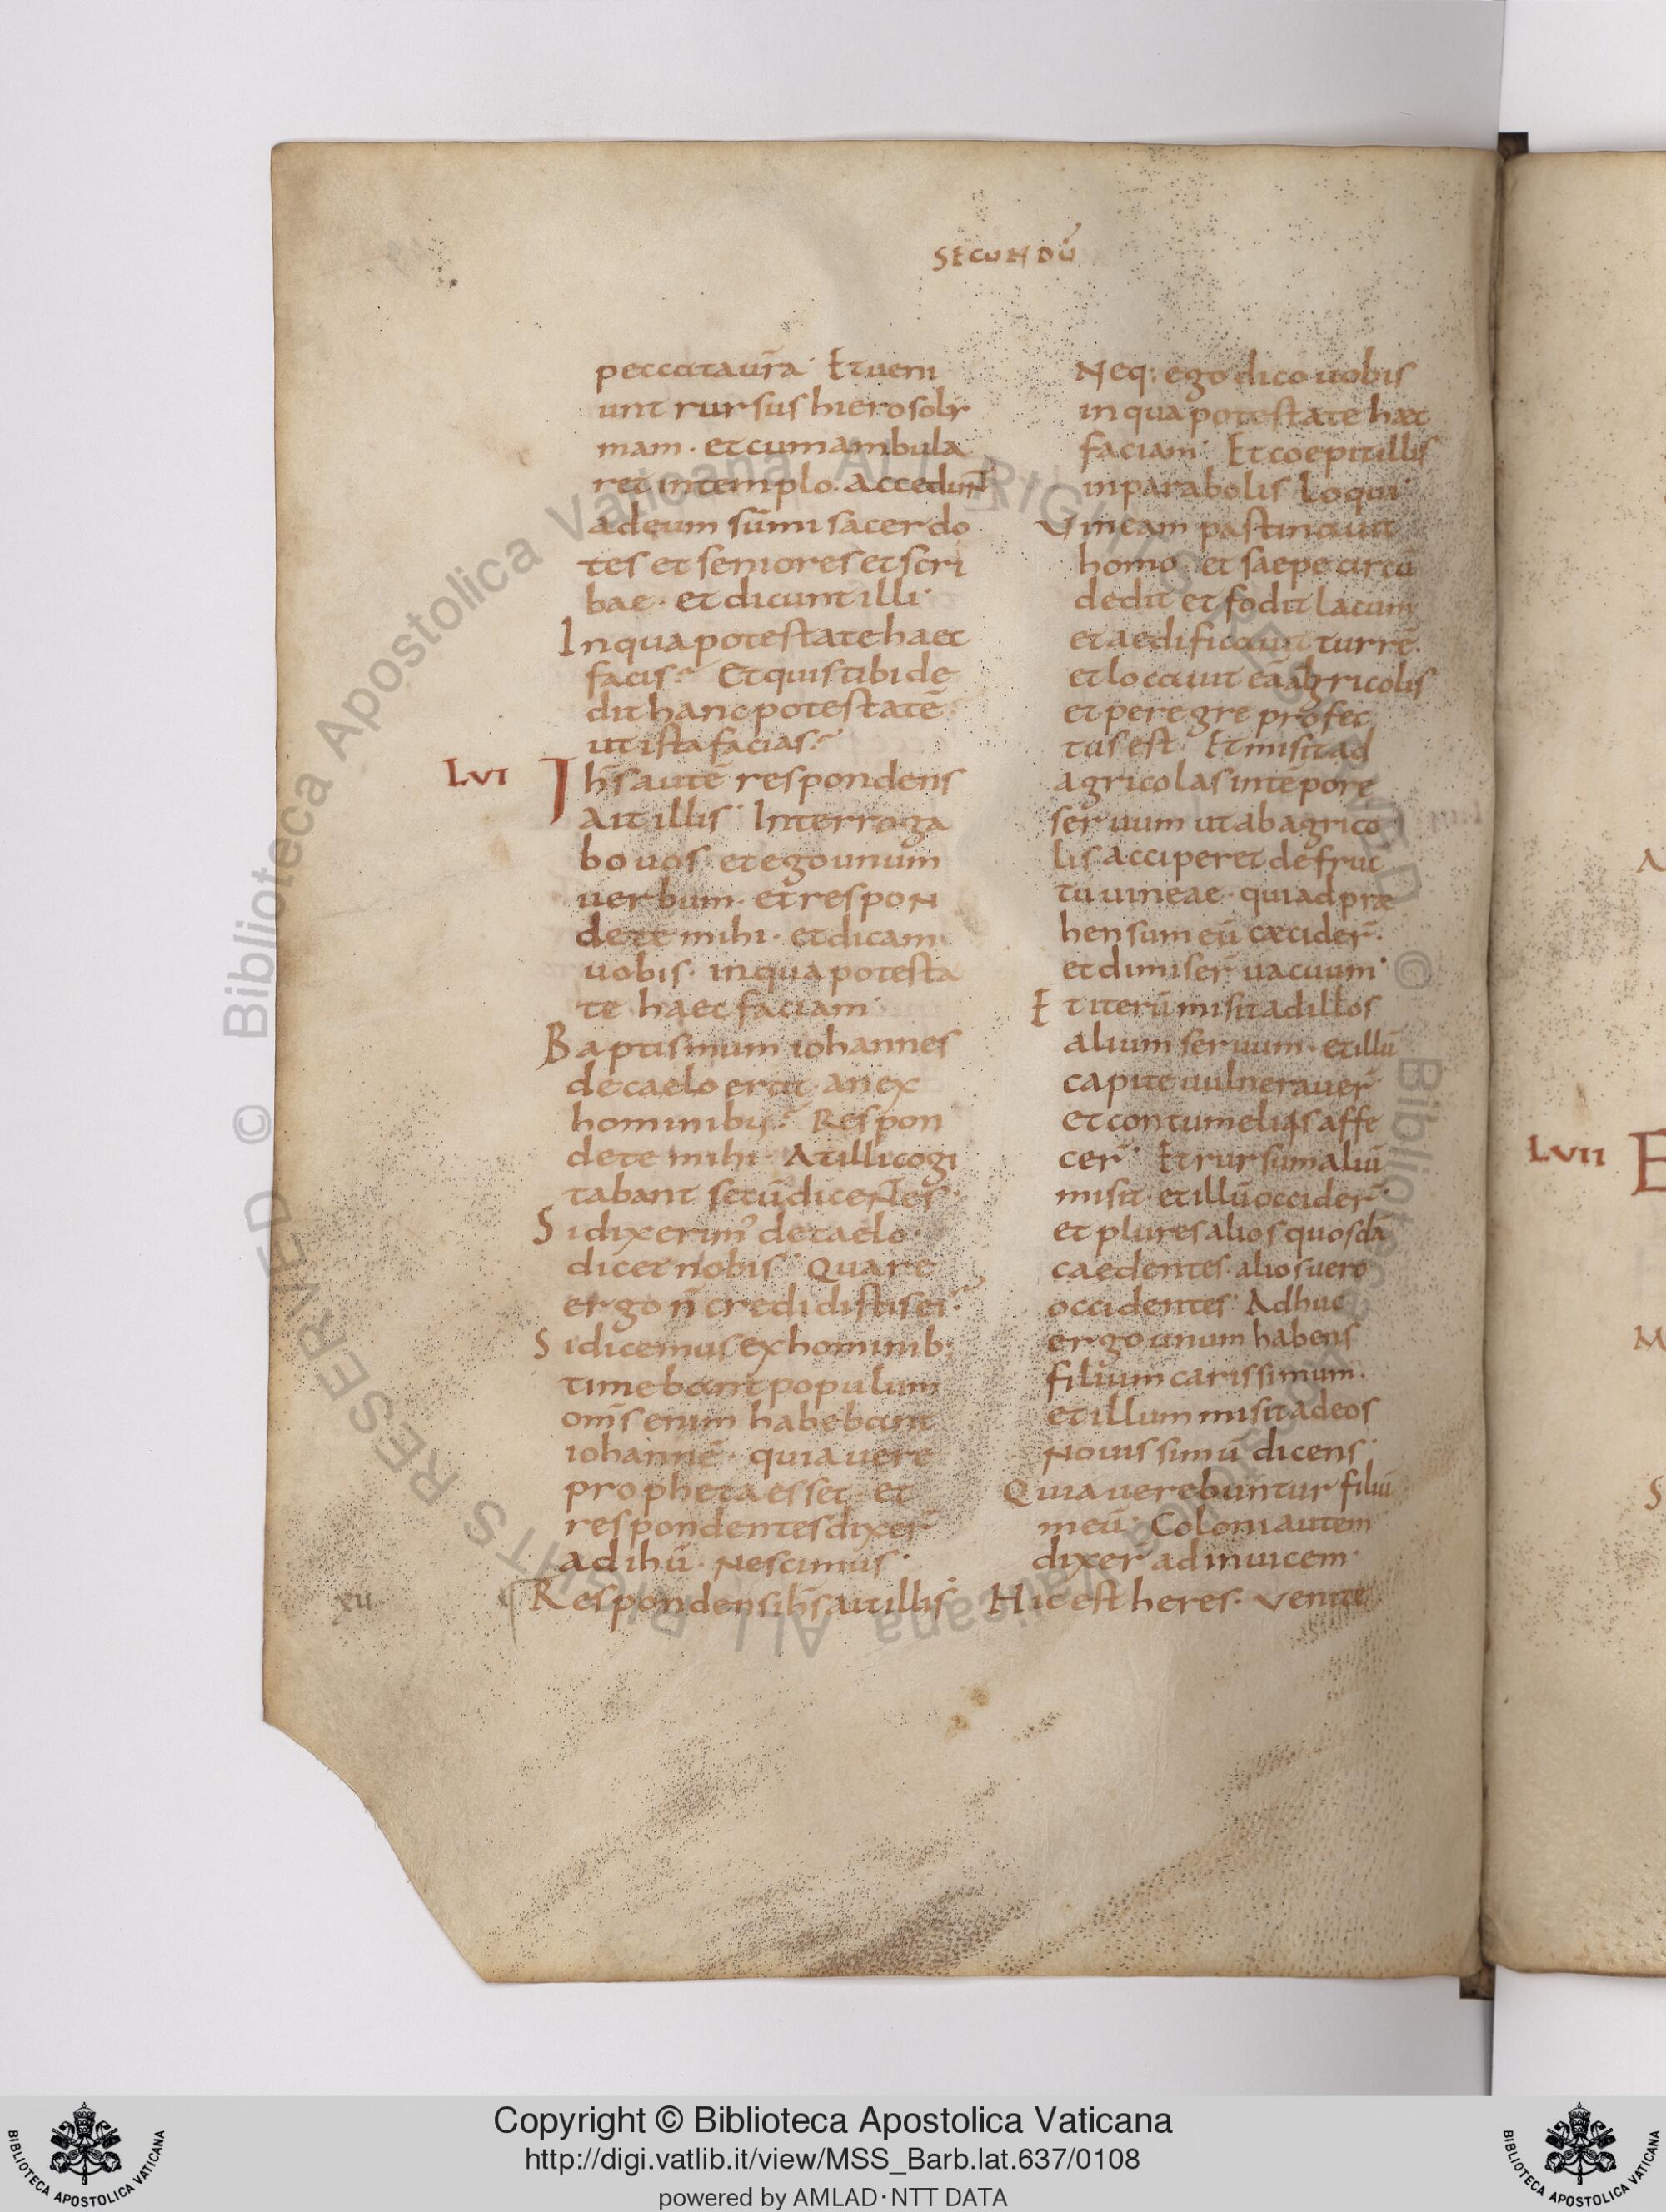 SECUNDŪ
peccata ur̄a· Et ueni
unt rursus hierosoly
mam· et cum ambula
ret in templo· Accedunt
ad eum sūmi sacerdo
tes et seniores et scri
bae· et dicunt illi·
In qua potestate haec
facis? Et quis tibi de
dit hanc potestatē
ut ista facias?
LVI
Ih̄s autē respondens
Ait illis· Interroga
bo uos et ego unum
uerbum· et respon
dete mihi· et dicam
uobis· in qua potesta
te haec faciam·
Baptismum iohannes
de caelo erat· an ex
hominibus? Respon
dete mihi· At illi cogi
tabant secū dicentes·
Si dixerim' de caelo·
dicet nobis· Quare
ergo n̄ credidistis ei?
Si dicemus ex hominib;
timebant populum
om̄s enim habebant
iohannē· quia uere
propheta esset· et
respondentes dixer̄
ad ih̄ū· Nescimus·
Respondens ih̄s ait illis·
xii·
Neq; ego dico uobis
in qua potestate haec
faciam· Et coepit illis
in parabolis Loqui·
Vineam pastinauit
homo et saepe circū
dedit et fodit lacum
et aedificauit turrē·
et locauit eā agricolis
et peregre profec
tus est· Et misit ad
agricolas in tēpore
seruum ut ab agrico
lis acciperet de fruc
tu uineae· qui adprae
hensum eū caecider̄·
et dimiser̄ uacuum·
Et iterū misit ad illos
alium seruum· et illū
capite uulnerauer̄
et contumeliis affe
cer̄· Et rursum aliū
misit· et illū occider̄
et plures alios quosdā
caedentes· alios uero
occidentes· Adhuc
ergo unum habens
filium carissimum·
et illum misit ad eos
Nouissimū dicens·
Quia uerebuntur filiū
meū· Coloni autem
dixer̄ ad inuicem·
Hic est heres· Venite
LVII
Copyright © Biblioteca Apostolica Vaticana
http://digi.vatlib.it/view/MSS_Barb.lat.637/0108
powered by AMLAD·NTT DATA